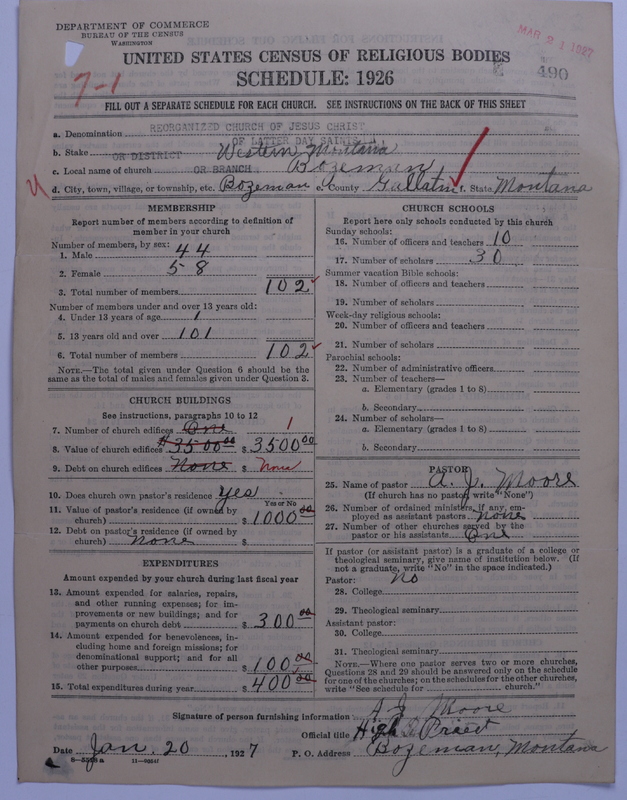 DEPARTMENT OF COMMERCE
BUREAU OF THE CENSUS
WASHINGTON
MAR 21 1927
UNITED STATES CENSUS OF RELIGIOUS BODIES
SCHEDULE: 1926
490
7-1
FILL OUT A SEPARATE SCHEDULE FOR EACH CHURCH. SEE INSTRUCTIONS ON THE BACK OF THIS SHEET
a. Denomination REORGANIZED CHURCH OF JESUS CHRIST
OF LATTER DAY SAINTS
b. Stake OR DISTRICT Western Montana
c. Local name of church OR BRANCH Bozeman
d. City, town, village, or township, etc. Bozeman e. County Gallatin f. State Montana
MEMBERSHIP
Report number of members according to definition of
member in your church
Number of members, by sex:
1. Male 44
2. Female 58
3. Total number of members 102
Number of members under and over 13 years old:
4. Under 13 years of age 1
5. 13 years old and over 101
6. Total number of members 102
NOTE.—The total given under Question 6 should be the
same as the total of males and females given under Question 3.
CHURCH BUILDINGS
See instructions, paragraphs 10 to 12
7. Number of church edifices One 1
8. Value of church edifices $3500.00 $ 3500.00
9. Debt on church edifices None $ None
10. Does church own pastor's residence yes
Yes or No
11. Value of pastor's residence (if owned by
church) $ 1000.00
12. Debt on pastor's residence (if owned by
church) none $
EXPENDITURES
Amount expended by your church during last fiscal year
13. Amount expended for salaries, repairs,
and other running expenses; for im-
provements or new buildings; and for
payments on church debt $ 300.00
14. Amount expended for benevolences, in-
cluding home and foreign missions; for
denominational support; and for all
other purposes $ 100.00
15. Total expenditures during year $ 400.00
CHURCH SCHOOLS
Report here only schools conducted by this church
Sunday schools:
16. Number of officers and teachers 10
17. Number of scholars 30
Summer vacation Bible schools:
18. Number of officers and teachers
19. Number of scholars
Week-day religious schools:
20. Number of officers and teachers
21. Number of scholars
Parochial schools:
22. Number of administrative officers
23. Number of teachers—
a. Elementary (grades 1 to 8)
b. Secondary
24. Number of scholars—
a. Elementary (grades 1 to 8)
b. Secondary
PASTOR
25. Name of pastor A. J. Moore
(If church has no pastor, write "None")
26. Number of ordained ministers, if any, em-
ployed as assistant pastors none
27. Number of other churches served by the
pastor or his assistants One
If pastor (or assistant pastor) is a graduate of a college or
theological seminary, give name of institution below. (If
not a graduate, write "No" in the space indicated.)
Pastor: No
28. College
29. Theological seminary
Assistant pastor:
30. College
31. Theological seminary
NOTE.—Where one pastor serves two or more churches,
Questions 28 and 29 should be answered only on the schedule
for one of the churches; on the schedules for the other churches,
write "See schedule for church."
Signature of person furnishing information A J Moore
Official title High Priest
Date Jan. 20, 1927 P. O. Address Bozeman, Montana